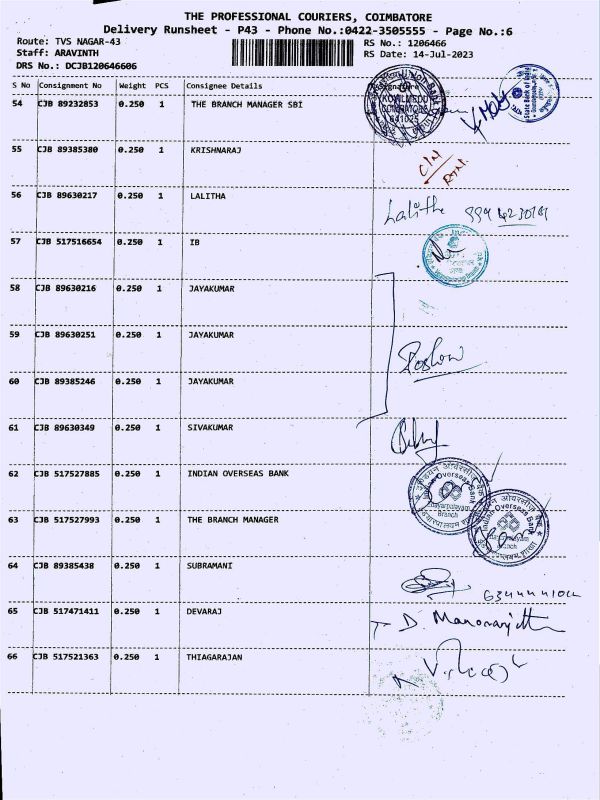 THE PROFESSIONAL COURIERS, COIMBATORE
Delivery Runsheet - P43 - Phone No.:0422-3505555 - Page No.:6
Route: TVS NAGAR-43 RS No.: 1206466
Staff: ARAVINTH RS Date: 14-Jul-2023
DRS No.: DCJB120646606
S No Consignment No Weight PCS Consignee Details Signature
54 CJB 89232853 0.250 1 THE BRANCH MANAGER SBI
55 CJB 89385380 0.250 1 KRISHNARAJ
56 CJB 89630217 0.250 1 LALITHA Lalitha
57 CJB 517516654 0.250 1 IB
58 CJB 89630216 0.250 1 JAYAKUMAR
59 CJB 89630251 0.250 1 JAYAKUMAR
60 CJB 89385246 0.250 1 JAYAKUMAR
61 CJB 89630349 0.250 1 SIVAKUMAR
62 CJB 517527885 0.250 1 INDIAN OVERSEAS BANK Indian Overseas Bank Branch
63 CJB 517527993 0.250 1 THE BRANCH MANAGER Indian Overseas Bank Branch
64 CJB 89385438 0.250 1 SUBRAMANI
65 CJB 517471411 0.250 1 DEVARAJ
66 CJB 517521363 0.250 1 THIAGARAJAN